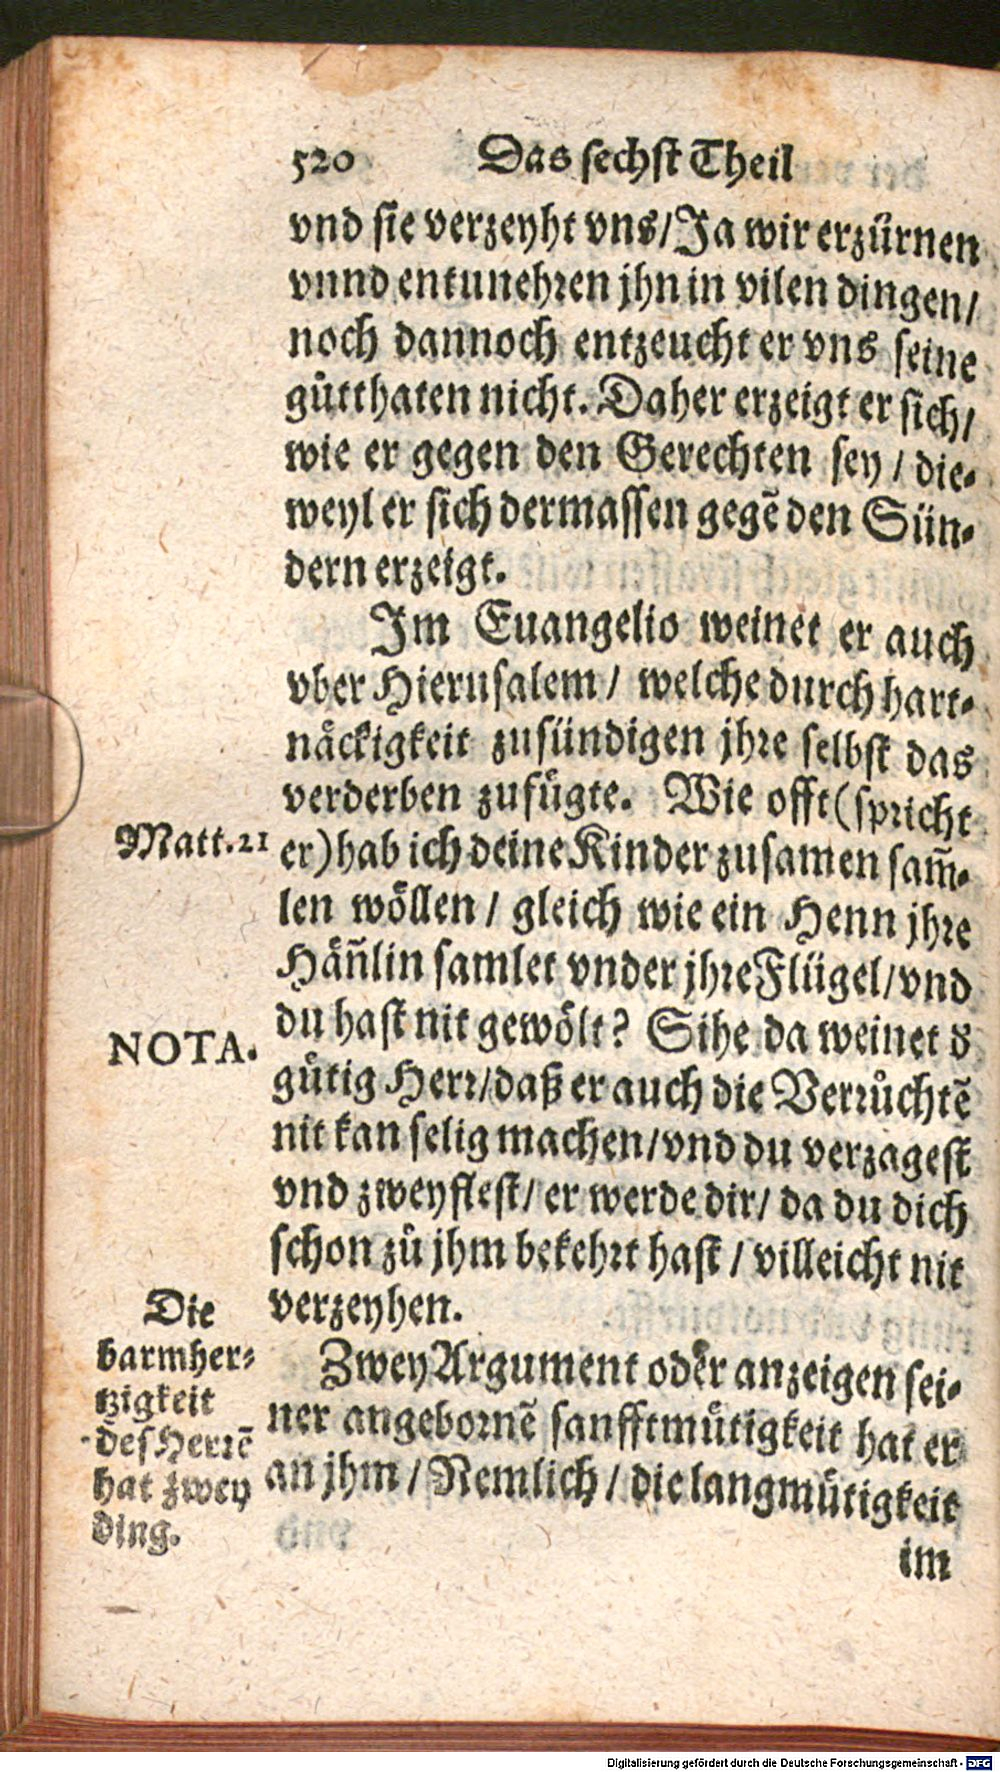 520 Das sechst Theil
vnd sie verzeyht vns/Ja wir erzürnen
vnnd entunehren jhn in vilen dingen/
noch dannoch entzeucht er vns seine
gůtthaten nicht. Daher erzeigt er sich/
wie er gegen den Gerechten sey / die-
weyl er sich dermassen gegẽ den Sün-
dern erzeigt.
Im Euangelio weinet er auch
vber Hierusalem / welche durch hart-
näckigkeit zusündigen jhre selbst das
verderben zufügte. Wie offt (spricht
Matt.21
er) hab ich deine Kinder zusamen sam̃-
len wöllen / gleich wie ein Henn jhre
Hän̄lin samlet vnder jhre Flügel/vnd
du hast nit gewölt? Sihe da weinet d'
NOTA.
gůtig Herr/daß er auch die Verrůchtẽ
nit kan selig machen/vnd du verzagest
vnd zweyflest/ er werde dir/ da du dich
schon zů jhm bekehrt hast / villeicht nit
verzeyhen.
Die
barmher-
tzigkeit
des Herrẽ
hat zwey
ding.
Zwey Argument oder anzeigen sei-
ner angebornẽ sanfftmůtigkeit hat er
an jhm / Nemlich / die langmůtigkeit
im
Digitalisierung gefördert durch die Deutsche Forschungsgemeinschaft - DFG